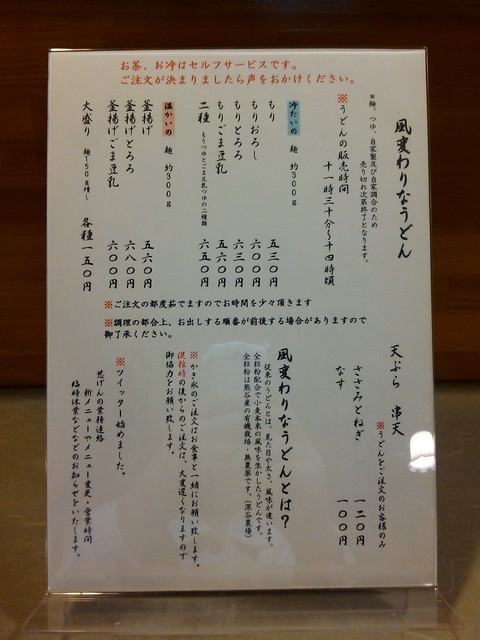 お茶、お冷はセルフサービスです。
ご注文が決まりましたら声をおかけください。
風変わりなうどん
＊麺、つゆ、自家製及び自家調合のため
売り切れ次第終了となります。
※うどんの販売時間
十一時三十分～十四時頃
冷たいの 麺 約300g
もり 五三〇円
もりおろし 六〇〇円
もりとろろ 六三〇円
もりごま豆乳 五六〇円
二種 もりつゆとごま豆乳つゆの二種類 六五〇円
温かいの 麺 約300g
釜揚げ 五六〇円
釜揚げとろろ 六八〇円
釜揚げごま豆乳 六〇〇円
大盛り 麺150g増し 各種一五〇円
※ご注文の都度茹でますのでお時間を少々頂きます
※調理の都合上、お出しする順番が前後する場合がありますので
御了承ください。
天ぷら 串天
※うどんをご注文のお客様のみ
ささみとねぎ 一二〇円
なす 一〇〇円
風変わりなうどんとは？
従来のうどんとは、見た目や太さ、風味が違います。
全粒粉配合で小麦本来の風味を生かしたうどんです。
全粒粉は熊谷産の有機栽培・無農薬です。（深谷農場）
※かき氷のご注文はお食事と一緒にお願い致します。
混雑時の後からのご注文は、大変遅くなりますので
御協力をお願い致します。
※ツイッター始めました。
忍げんの業務連絡
新メニューやメニュー変更・営業時間
臨時休業などなどのお知らせをいたします。